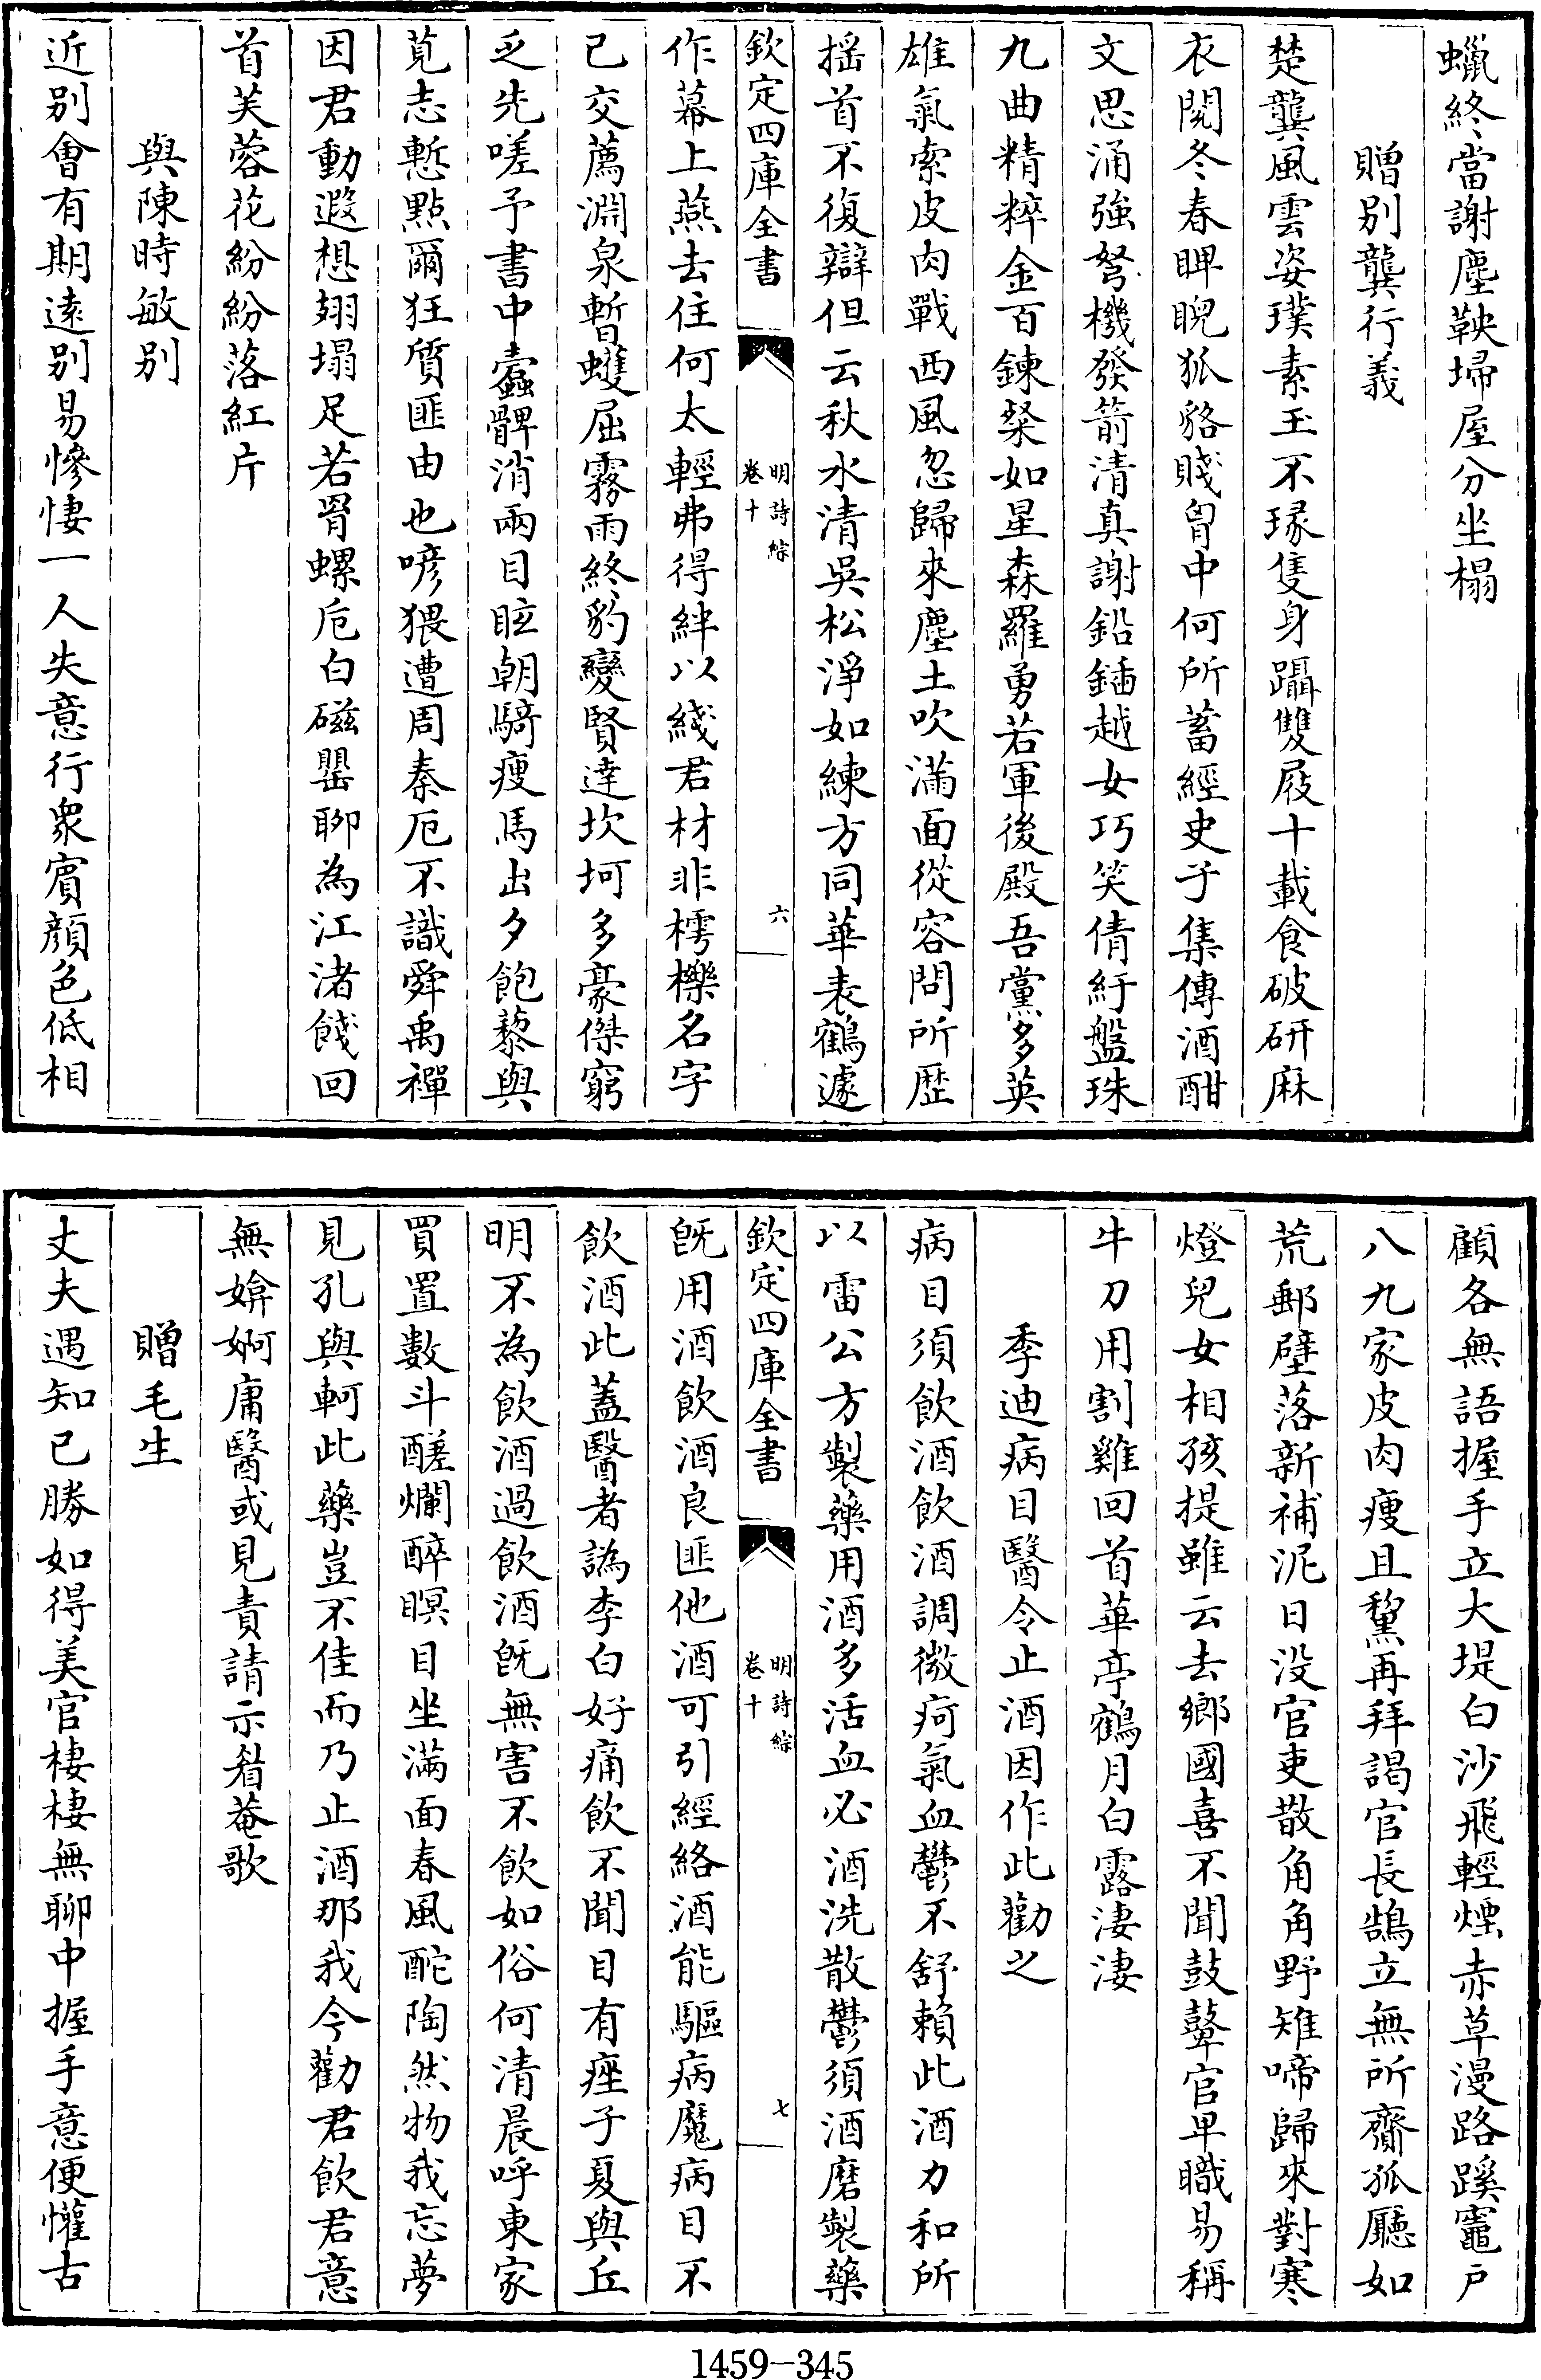 蠟終當謝塵鞅埽屋分坐榻
贈别龔行義
楚龔風雲姿璞素玉不瑑隻身躡雙屐十載食破研麻
衣閱冬春睥睨狐貉賤胷中何所蓄經史子集傳酒酣
文思涌強弩機發箭清真謝鉛鍤越女巧笑倩紆盤珠
九曲精粹金百鍊粲如星森羅勇若軍後殿吾黨多英
雄氣索皮肉戰西風忽歸來塵土吹滿面從容問所歷
搖首不復辯但云秋水清吳松淨如練方同華表鶴遽
欽定四庫全書
明詩綜
卷十
六
作幕上燕去住何太輕弗得絆以綫君材非樗櫟名字
已交薦淵泉暫蠖屈霧雨終豹變賢達坎坷多豪傑窮
乏先嗟予書中蠹髀消兩目眩朝騎瘦馬出夕飽藜與
莧志慙點爾狂質匪由也喭猥遭周秦厄不識舜禹禪
因君動遐想翅塌足若罥螺卮白磁罌聊為江渚餞回
首芙蓉花紛紛落紅片
與陳時敏别
近别會有期遠别易慘悽一人失意行衆賓顏色低相
顧各無語握手立大堤白沙飛輕煙赤草漫路蹊竈戶
八九家皮肉瘦且黧再拜謁官長鵠立無所齎孤廳如
荒郵壁落新補泥日没官吏散角角野雉啼歸來對寒
燈兒女相孩提雖云去鄉國喜不聞鼓鼙官卑職易稱
牛刀用割雞回首華亭鶴月白露淒淒
季迪病目醫令止酒因作此勸之
病目須飲酒飲酒調微疴氣血鬱不舒賴此酒力和所
以雷公方製藥用酒多活血必酒洗散鬱須酒磨製藥
欽定四庫全書
明詩綜
卷十
七
旣用酒飲酒良匪他酒可引經絡酒能驅病魔病目不
飲酒此蓋醫者譌李白好痛飲不聞目有痤子夏與丘
明不為飲酒過飲酒旣無害不飲如俗何清晨呼東家
買置數斗醝爛醉瞑目坐滿面春風酡陶然物我忘夢
見孔與軻此藥豈不佳而乃止酒那我今勸君飲君意
無媕婀庸醫或見責請示眢菴歌
贈毛生
丈夫遇知已勝如得美官棲棲無聊中握手意便懽古
1459-345